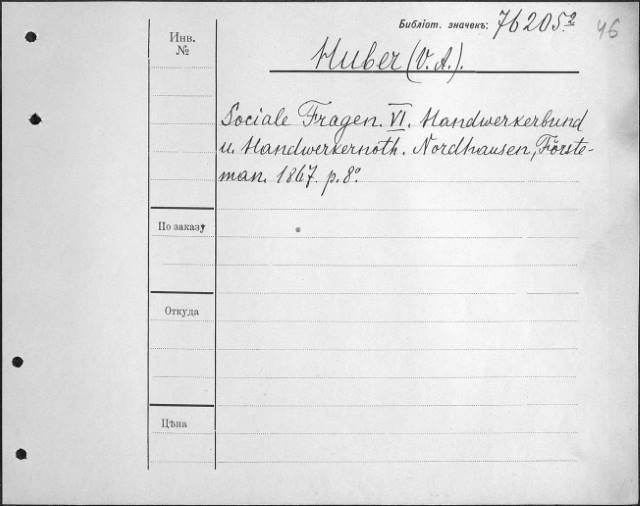 Библіот. значекъ: 76205.2 46
Инв.
№
Huber (V. A.).
Sociale Fragen. VI. Handwerkerbund
u. Handwerkernoth. Nordhausen, Förste-
man. 1867. p. 8°.
По заказу
Откуда
Цѣна